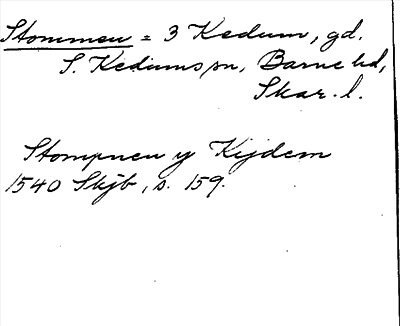 Stommen = 3 Kedum, gd.
S. Kedums sn, Barne hd,
Skar. l.
Stompnen y Kijdem
1540 Skjb, s. 159.